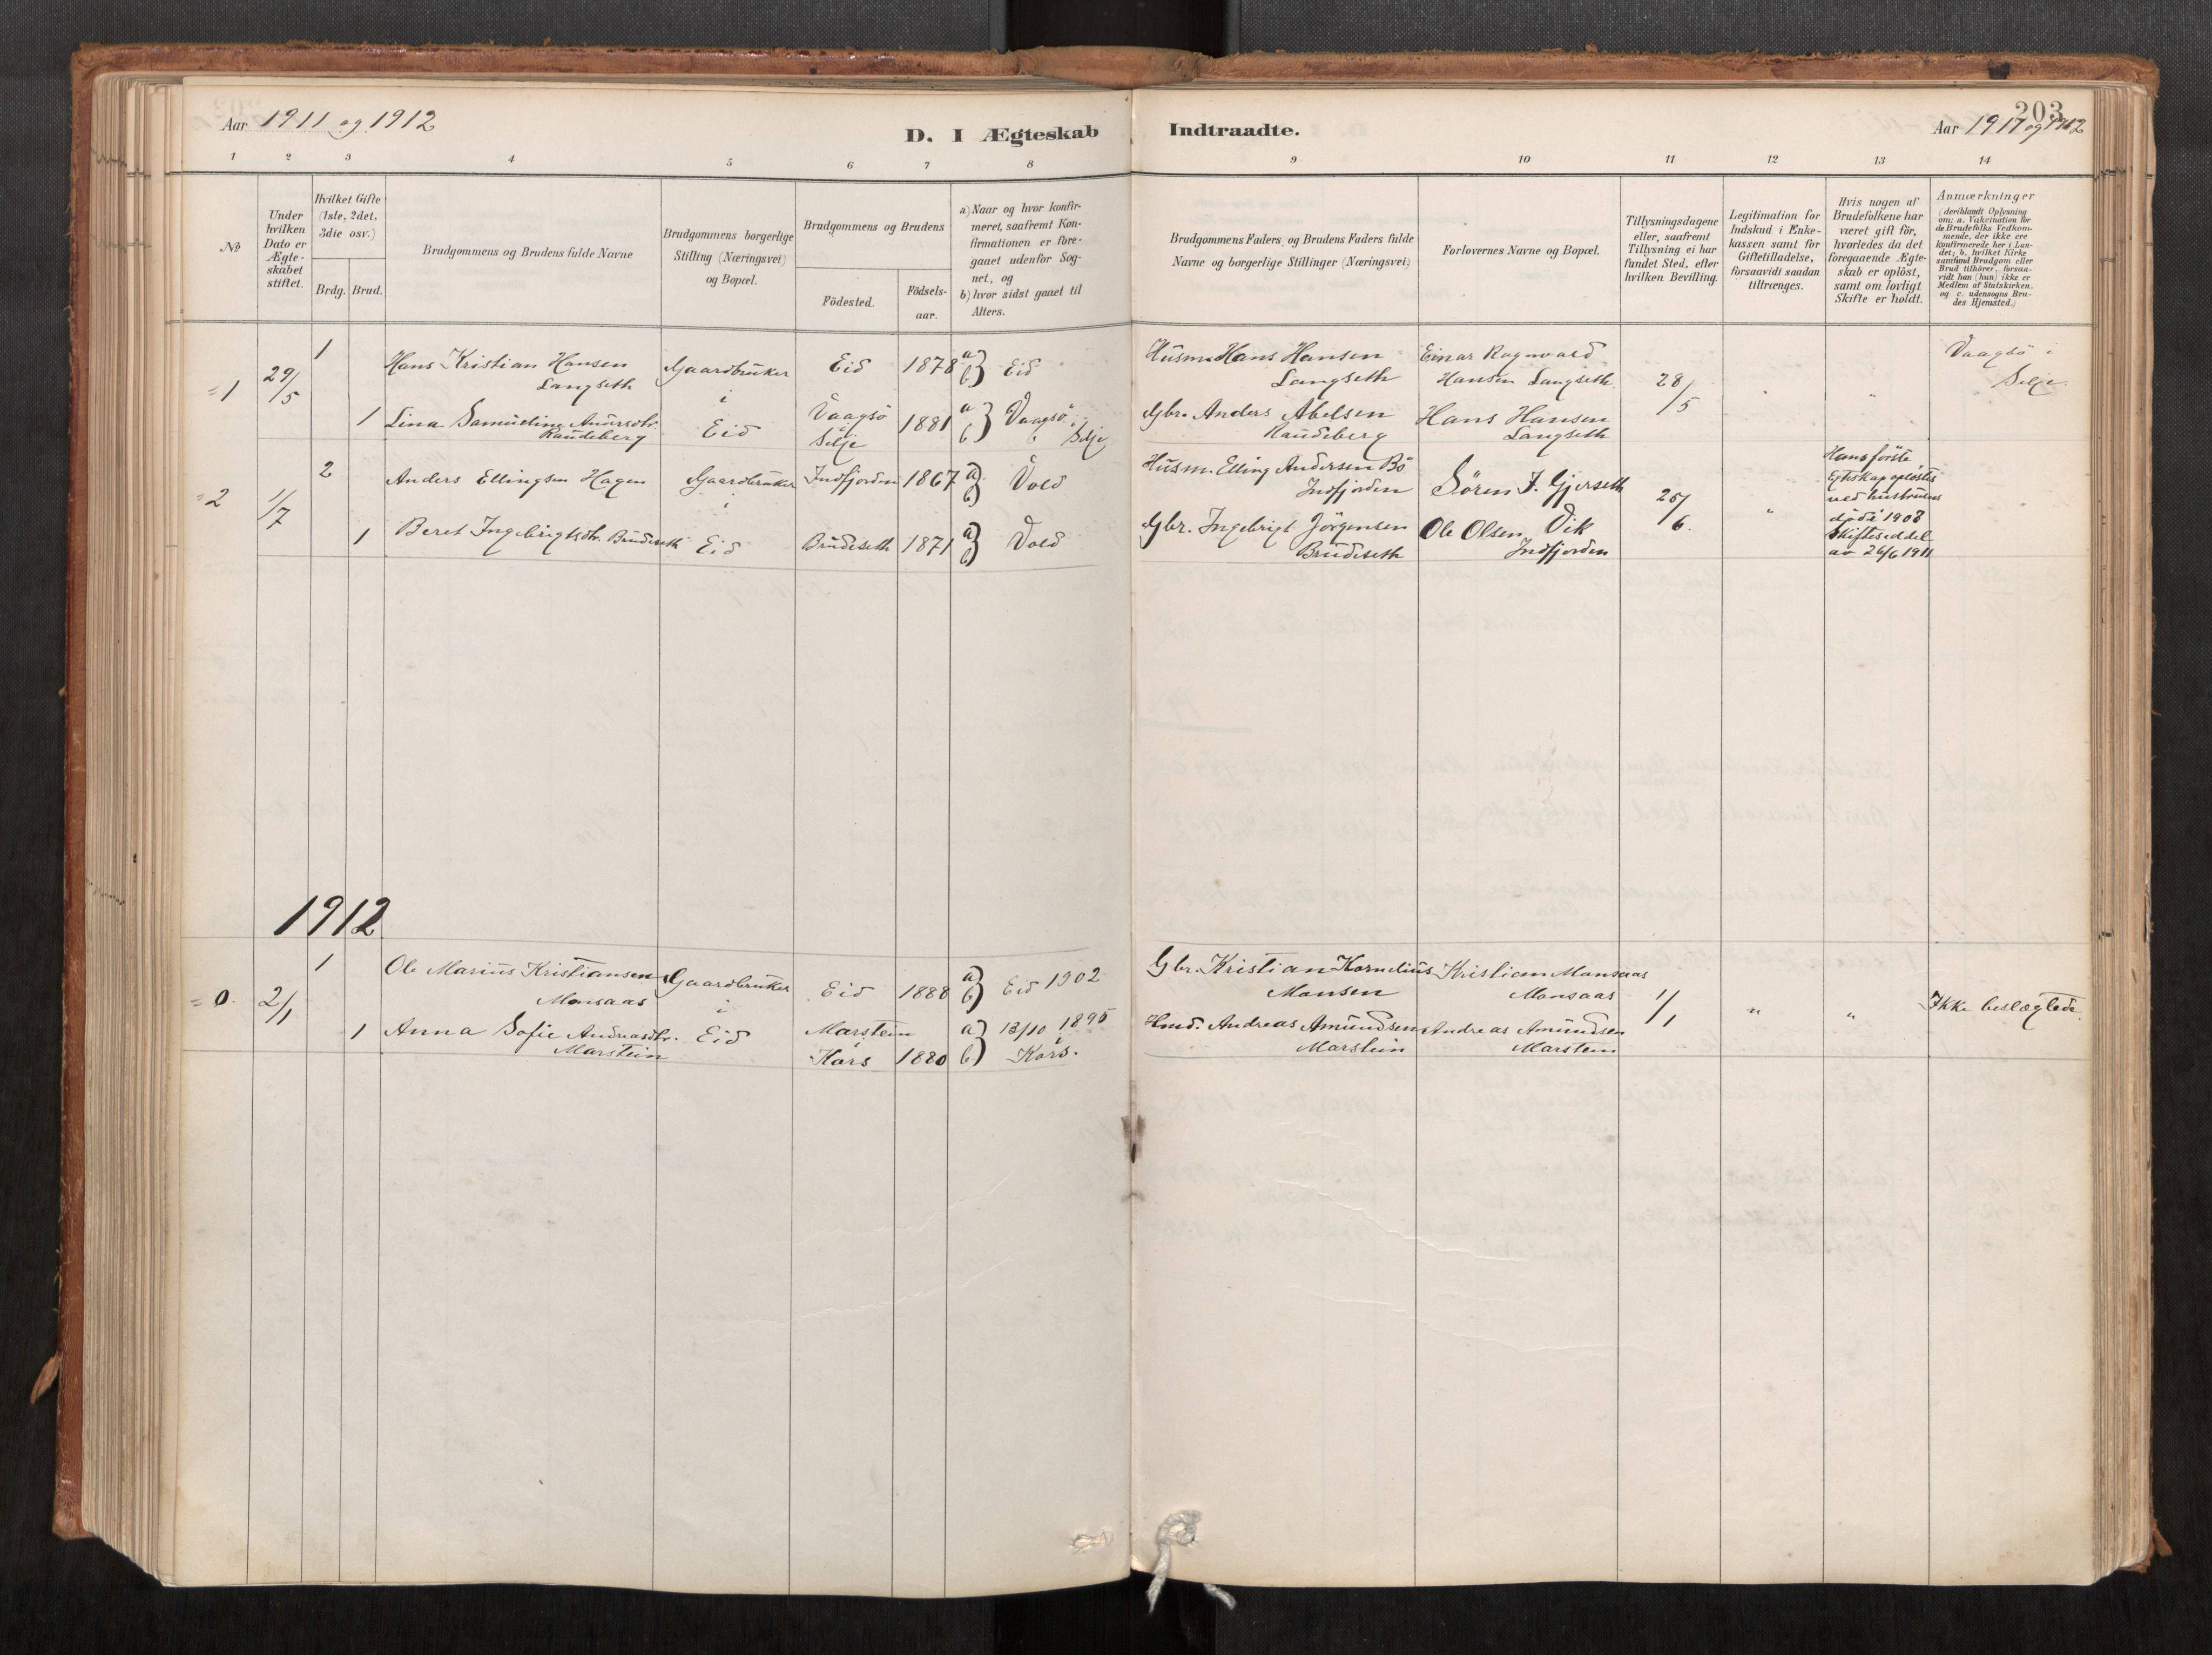 Aar 1911 og 1912
D. I Ægteskab Indtraadte.
203.
Aar 1911 og 1912
1 2 3 4 5 6 7 8 9 10 11 12 13 14
No
Under
hvilken
Dato er
Ægte-
skabet
stiftet.
Hvilket Gifte
(1ste, 2det,
3die osv.)
Brdg. Brud.
Brudgommens og Brudens fulde Navne
Brudgommens borgerlige
Stilling (Næringsvei)
og Bopæl.
Brudgommens og Brudens
Födested.
Födsels-
aar.
a) Naar og hvor konfir-
meret, saafremt Kon-
firmationen er fore-
gaaet udenfor Sog-
net, og
b) hvor sidst gaaet til
Alters.
Brudgommens Faders og Brudens Faders fulde
Navne og borgerlige Stillinger (Næringsvei)
Forlovernes Navne og Bopæl.
Tillysningsdagene
eller, saafremt
Tillysning ei har
fundet Sted, efter
hvilken Bevilling.
Legitimation for
Indskud i Enke-
kassen samt for
Giftetilladelse,
forsaavidt saadan
tiltrænges.
Hvis nogen af
Brudefolkene har
været gift för,
hvorledes da det
foregaaende Ægte-
skab er oplöst,
samt om lovligt
Skifte er holdt.
Anmærkninger
(deriblandt Oplysning
om: a. Vakcination for
de Brudefolks Vedkom-
mende, der ikke ere
konfirmerede her i Lan-
det; b. hvilket Kirke
samfund Brudgom eller
Brud tilhörer, forsaa-
vidt han (hun) ikke er
Medlem af Statskirken,
og c. udensogns Bru-
des Hjemsted.)
=1 29/5 1 Hans Kristian Hansen Gaardbruker Eid 1878 a) b) Eid Husm. Hans Hansen Einar Ragnvald 28/5 " " Vaagsö i
Langseth i Langseth Hansen Langseth Selje.
1 Lina Samueline Andersdtr. Eid Vaagsö 1881 a) b) Vaagsö i Gbr. Anders Abelsen Hans Hansen
Raudeberg i Selje Selje Raudeberg Langseth
=2 1/7 2 Anders Ellingsen Hagen Gaardbruker Indfjorden 1867 a) b) Vold Husm. Elling Andersen Bö Sören J. Gjerseth 25/6. "
i Indfjorden
Hans förste
Egteskap oplöstes
ved hustruens
död i 1908
Skifteseddel
av 26/6 1911
1 Beret Ingebrigtsdtr. Brudeseth Eid Brudeseth 1871 a) b) Vold Gbr. Ingebrigt Jörgensen Ole Olsen Vik
Brudeseth Indfjorden
1912
=0. 2/1 1 Ole Marius Kristiansen Gaardbruker Eid 1888 a) b) Eid 1902 Gbr. Kristian Kornelius Kristian Monsaas 1/1 " " Ikke beslægtede.
Monsaas i Monsen Monsaas
1 Anna Sofie Andreasdtr. Eid Marstein a) 13/10 1895 Hmd. Andreas Amundsen Andreas Amundsen
Marstein Kors 1880 b) Kors. Marstein Marstein